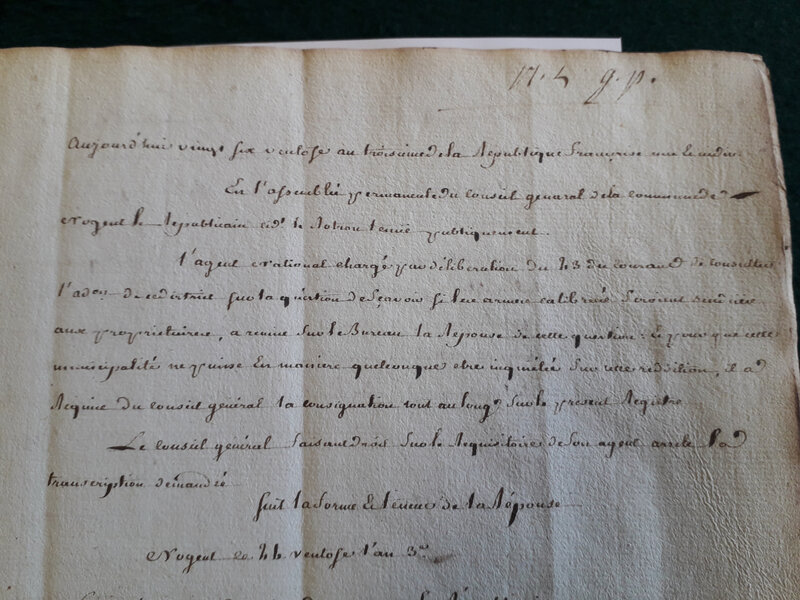 17. h g. p.
Aujourd'hui vingt six ventose an troisieme de la Republique francoise une Et indiv.
En l'assemblée permanente du Conseil general de la commune de
Nogent le Republicain cidt. le Rotrou tenue publiquement.
L'agent National chargé par déliberation du 23 du courant de consulter
l'adon. de ce district sur la question de Sçavoir si les armes calibrées seroient rendues
aux proprietaires, a remis sur le Bureau la Réponse de cette question; Et pour que cette
municipalité ne puisse En maniere quelconque etre inquietée sur cette reddition, il a
Requis du conseil général la consignation tout au long sur le present Registre
Le conseil général faisant droit sur le Requisitoire de son agent arrete la
transcription demandée
suit la forme Et teneur de la Réponse
Nogent ce 24 ventose l'an 3me